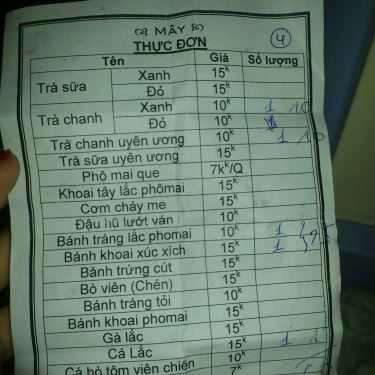 MÂY
THỰC ĐƠN
4
Tên Giá Số lượng
Trà sữa Xanh 15k
Đỏ 15k
Trà chanh Xanh 10k 1 10
Đỏ 10k
Trà chanh uyên ương 10k 1 10
Trà sữa uyên ương 15k
Phô mai que 7k/Q
Khoai tây lắc phômai 15k
Cơm cháy me 15k
Đậu hũ lướt ván 10k
Bánh tráng lắc phomai 10k 1
Bánh khoai xúc xích 15k 1
Bánh trứng cút 15k
Bò viên (Chén) 15k
Bánh tráng tỏi 10k
Bánh khoai phomai 15k
Gà lắc 15k
Cá Lắc 15k 1
Cá bò tôm viên chiên 10k
7k